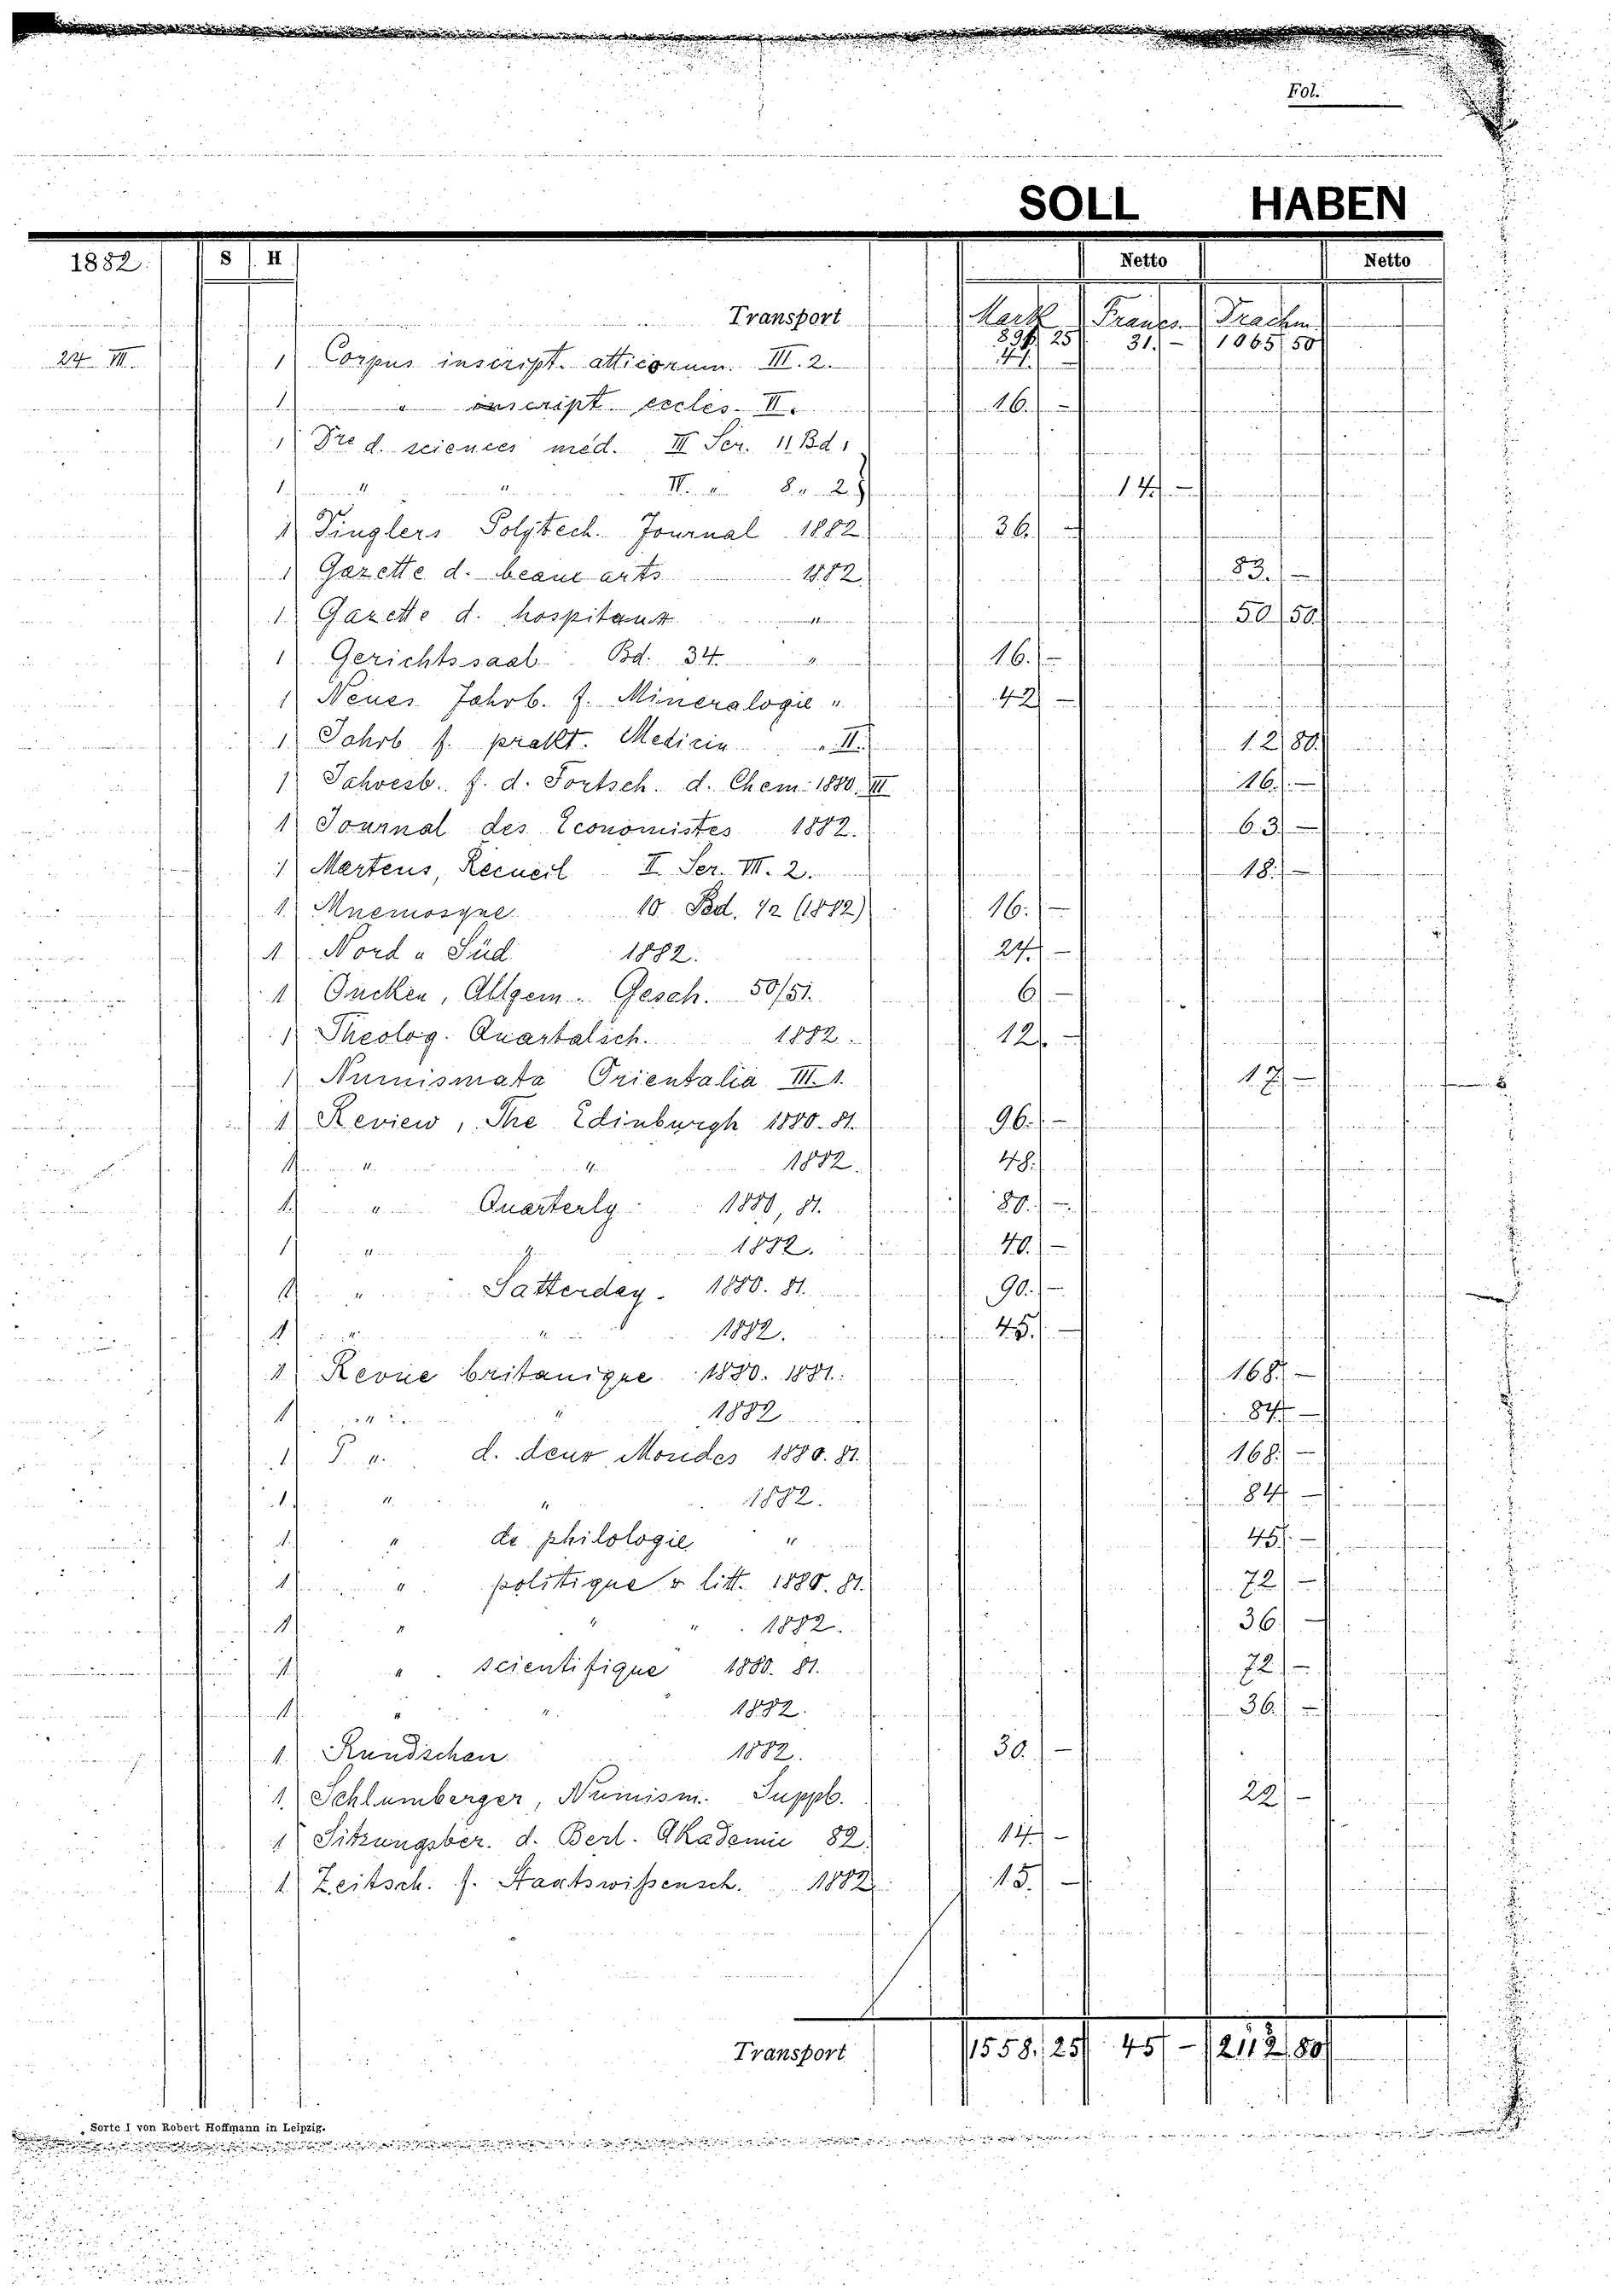 Fol.
SOLL HABEN
1882. S H Netto Netto
Transport Mark Francs Drachm.
25 31. — 1065 50
24 VII. 1 Corpus inscript. atticorum. III. 2.
1 " inscript. eccles. II. 16. —
1 d. sciences méd. III Ser. 11 Bd.
1 " " IV. " 8. " 2. 14. —
1 Dinglers Polytech. Journal 1882 36. —
1 Gazette d. beaux arts 1882. 83. —
1 Gazette d. hospitaux " 50 50
1 Gerichtssaal Bd. 34. " 16. —
1 Neues Jahrb. f. Mineralogie " 42 —
1 Jahrb f. prakt. Medicin " II. 12 80
1 Jahresb. f. d. Fortsch. d. Chem. 1880. III 16. —
1 Journal des Economistes 1882. 63 —
1 Martens, Recueil II Ser. VII. 2. 18. —
1 Mnemosyne 10 Bd. (1882) 16. —
1 Nord u Süd 1882. 24. —
1 Oncken, Allgem. Gesch. 50/51. 6 —
1 Theolog. Quartalsch. 1882. 12. —
1 Numismata Orientalia III. 1. 17 —
1 Review, The Edinburgh 1880. 81. 96. —
1 " " 1882. 48.
1 " Quarterly 1880, 81. 80. —
1 " " 1882. 40. —
1 " Satterday. 1880. 81. 90. —
1 " " 1882. 45. —
1 Revue britanique 1880. 1881. 168. —
1 " " 1882 84 —
1 " d. deux Mondes 1880. 81. 168. —
1 " " 1882. 84 —
1 " de philologie " 45. —
1 " politique & litt. 1880. 81. 72 —
1 " " " 1882. 36 —
1 " scientifique 1880. 81. 72 —
1 " " 1882. 36. —
1 Rundschau 1882. 30. —
1 Schlumberger, Numism. Suppl. 22 —
1 Sitzungsber. d. Berl. Akademie 82. 14. —
1 Zeitsch. f. Staatswißensch. 1882. 15. —
Transport 1558. 25 45 — 2112 80
Sorte I von Robert Hoffmann in Leipzig.